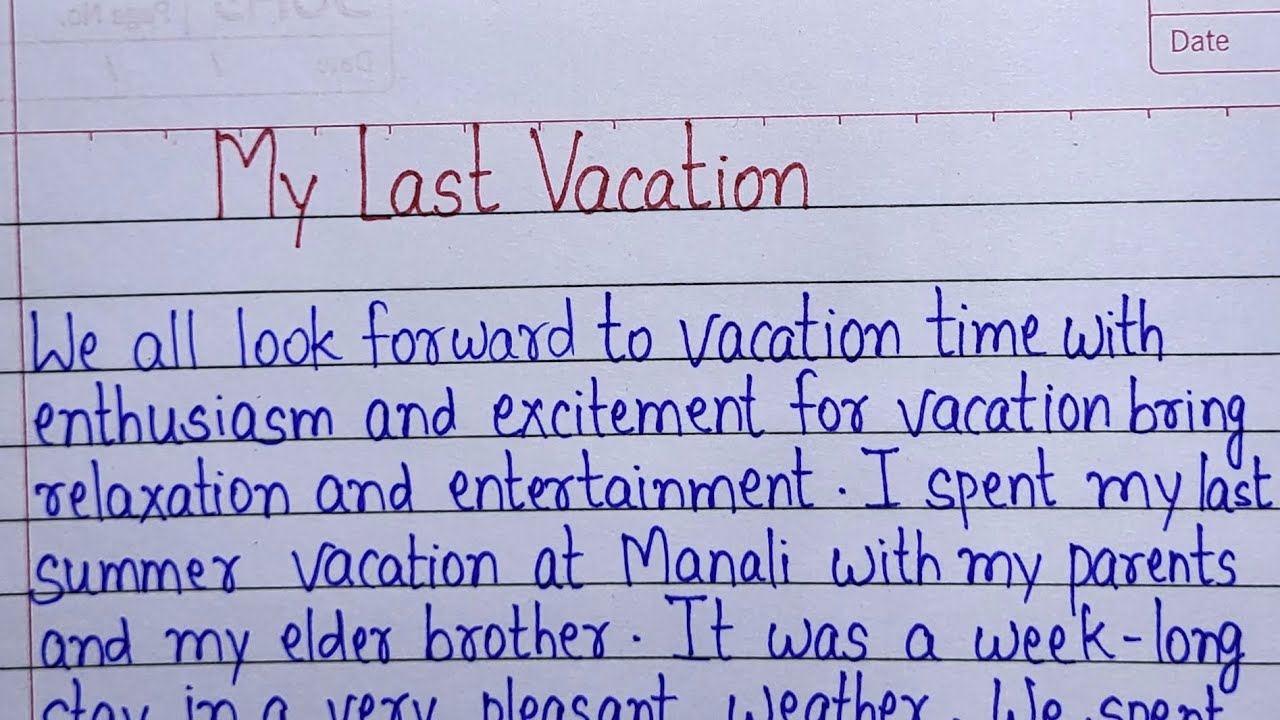 Date
My Last Vacation
We all look forward to vacation time with
enthusiasm and excitement for vacation bring
relaxation and entertainment. I spent my last
summer vacation at Manali with my parents
and my elder brother. It was a week-long
stay in a very pleasant weather. We spent